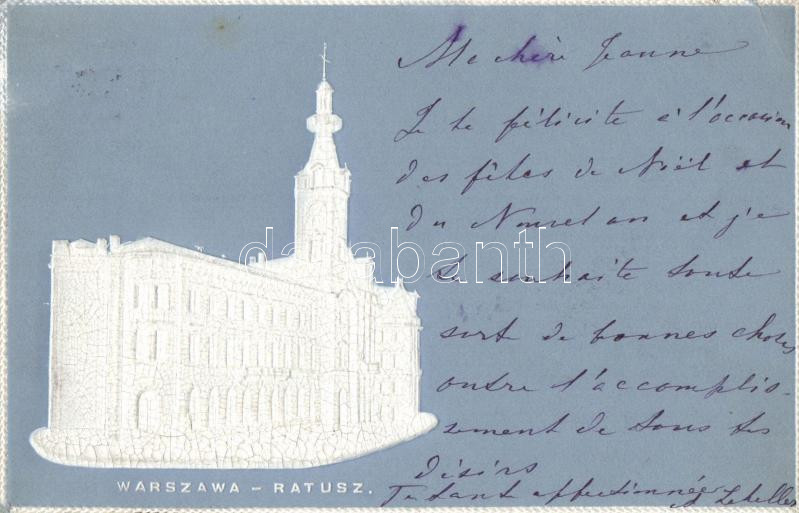 Ma chère Jeanne
Je te félicite à l'occasion
des fêtes de Noël et
du Nouvel an et je
te souhaite toute
sort de bonnes choses
outre l'accomplis-
sement de tous tes
désirs
Ta tante affectionnée
WARSZAWA – RATUSZ.
darabanth